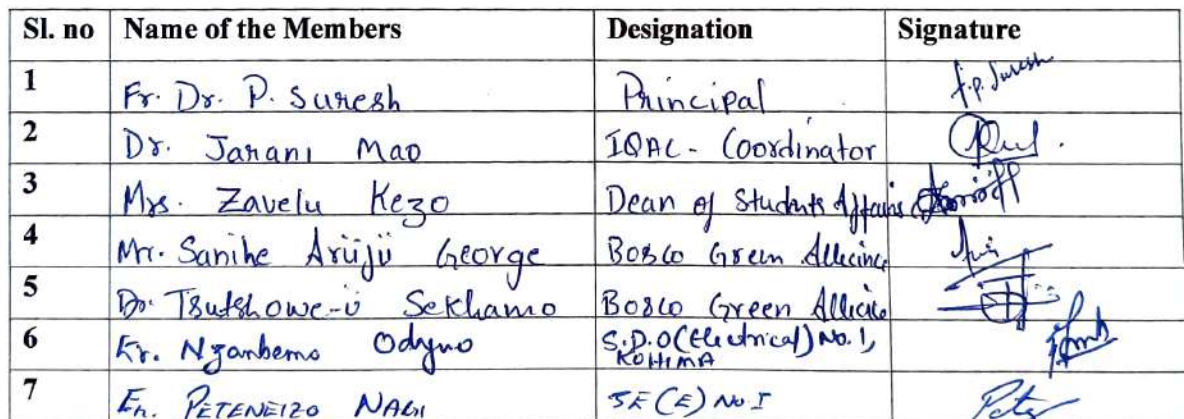 Sl. no Name of the Members Designation Signature
1 Fr. Dr. P. Suresh Principal f.p. Suresh
2 Dr. Jarani Mao IQAC - Coordinator
3 Mrs. Zavelu Kezo Dean of Students Affairs
4 Mr. Sanihe Arüjü George Bosco Green Allicince
5 Dr. Tsutshowe-ü Sekhamo Bosco Green Allicice
6 Er. Nzanbemo Odyuo S.D.O (Electrical) No. 1,
KOHIMA
7 Er. PETENEIZO JE (E) No I Pete